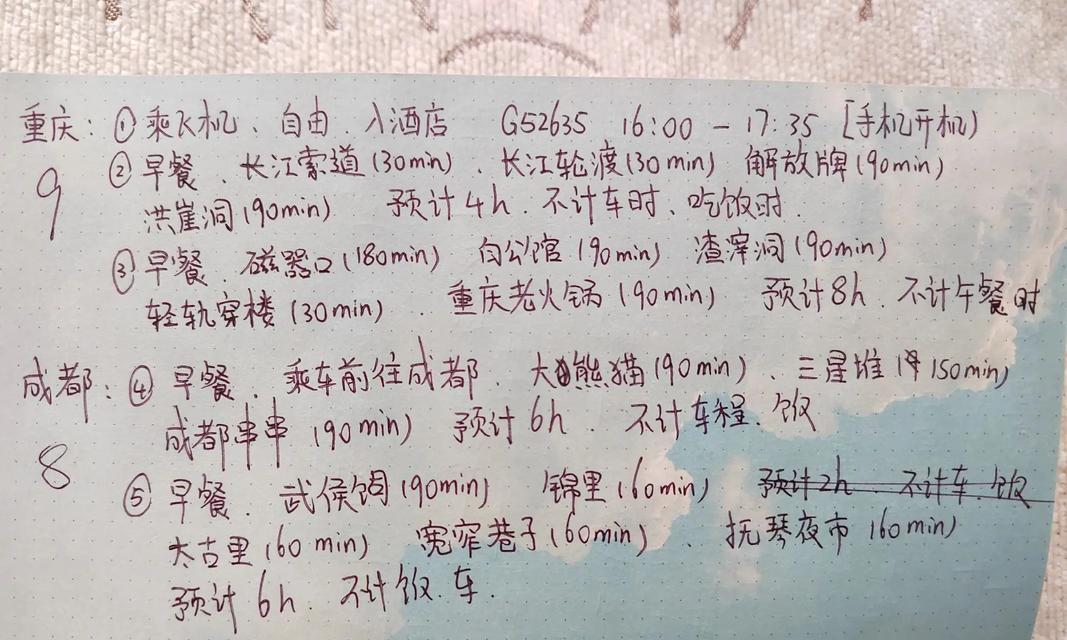 重庆：①乘飞机、自由、入酒店 G52635 16:00 - 17:35 [手机开机)
②早餐、长江索道(30min)、长江轮渡(30min) 解放牌(90min)
9
洪崖洞(90min) 预计4h、不计车时、吃饭时
③早餐、磁器口(180min) 白公馆(90min) 渣滓洞(90min)
轻轨穿楼(30min)、重庆老火锅(90min) 预计8h、不计午餐时
成都：④早餐、乘车前往成都、大熊猫(90min)、三星堆(150min)
成都串串(90min) 预计6h、不计车程、饭
8
⑤早餐、武侯祠(90min) 锦里(60min) 预计2h、不计车、饭
太古里(60min) 宽窄巷子(60min)、抚琴夜市(60min)
预计6h、不计饭、车、